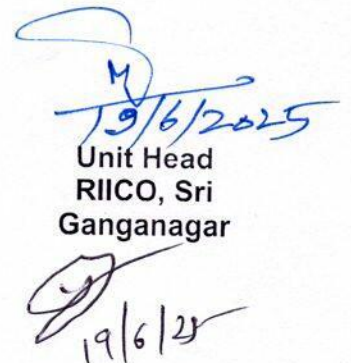 19/6/2025
Unit Head
RIICO, Sri
Ganganagar
19/6/25